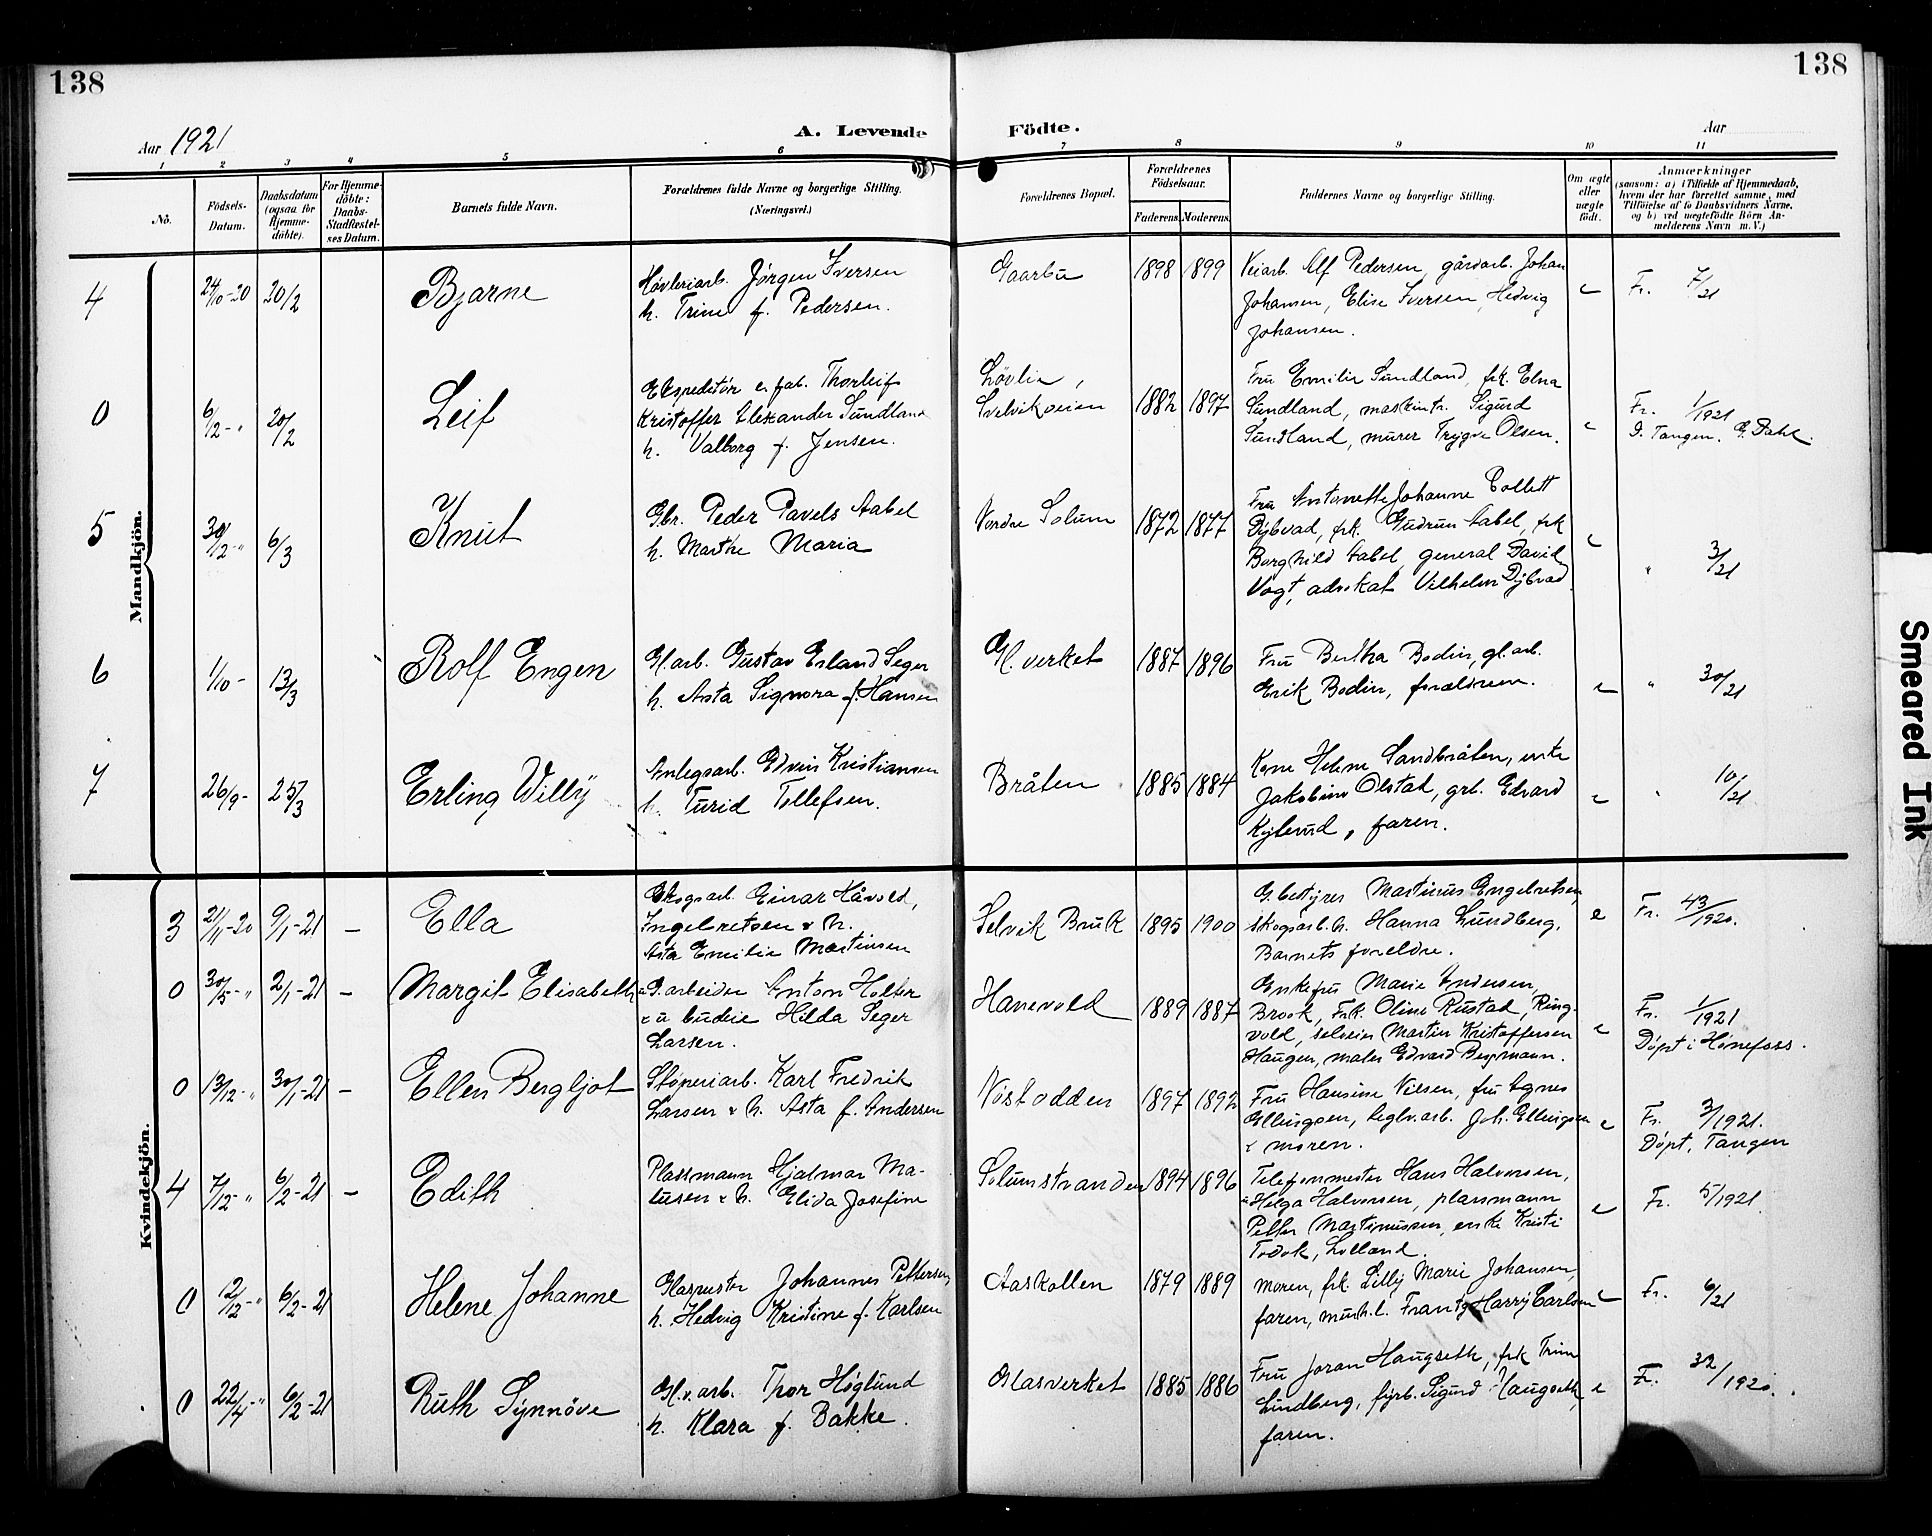 138
138
Aar 1921
A. Levende Födte.
Aar
1 2 3 4 5 6 7 8 9 10 11
No.
Födsels-
Datum.
Daabsdatum
(ogsaa for
Hjemme-
döbte).
For Hjemme-
döbte:
Daabs-
Stadfæstel-
ses Datum.
Barnets fulde Navn.
Forældrenes fulde Navne og borgerlige Stilling.
(Næringsvei.)
Forældrenes Bopæl.
Forældrenes
Födselsaar.
Faderens. Moderens.
Faddernes Navne og borgerlige Stilling.
Om ægte
eller
uægte
födt.
Anmærkninger
(saasom: a) i Tilfælde af Hjemmedaab,
hvem der har forrettet samme, med
Tilföielse af to Daabsvidners Navne.
og b) ved uegtefödte Börn An-
melderens Navn m. V.)
Mandkjön.
4 24/10-20 20/2 Bjarne
Høvleriarb. Jörgen Iversen
h. Trine f. Pedersen.
Gaarbu 1898 1899
Veiarb. Alf Pedersen, gårdarb. Johan
Johansen, Elise Iversen, Hedvig
Johansen.
e Fr. 7/21
0 6/12-" 20/2 Leif
Ekspeditör e. fab. Thorleif
Kristoffer Alexander Sundland
h. Valborg f. Jensen.
Lövlia,
Svelvikveien 1882 1897
Fru Emilie Sundland, frk. Elna
Sundland, maskintr. Sigurd
Sundland, murer Trygve Olsen.
e Fr. 1/1921
D. Tangen. G. Dahl.
5 30/12-" 6/3 Knut
Gbr. Peder Pavels Aabel
h. Marthe Maria
Nordre Solum 1872 1877
Fru Antonette Johanne Collett
Dybvad, frk. Gudrun Aabel, frk
Borghild Aabel, general David
Vogt, advokat Vilhelm Dybvad
e " 3/21
6 1/10- 13/3 Rolf Engen
Gl.arb. Gustav Erland Seger
h. Asta Signora f. Hansen
Gl.verket 1887 1896
Fru Bertha Bodin, gl.arb.
Erik Bodin, forældrene.
e " 30/21
7 26/9- 25/3 Erling Willy
Anlegsarb. Edvin Kristiansen
h. Turid Tellefsen.
Bråten 1885 1884
Kone Helene Sandbråten, enke
Jakobine Olstad, grb. Edvard
, faren.
e " 10/21
Kvindekjön.
3 21/11-20 9/1-21 - Ella
Skogsarb. Einar Håvold,
Ingebretsen & h.
Asta Emilie Martinsen
Selvik Bruk 1895 1900
G.bestyrer Martinius Engebretsen,
skogsarb. h. Hanna Lundberg,
Barnets foreldre.
e Fr. 43/1920.
0 30/5-" 2/1-21 - Margit Elisabeth
G.arbeider Anton Holter
& u budeie Hilda Seger
Larsen.
Hanevold 1889 1887
Enkefru Marie Andersen,
Brook, Frk. Oline Rustad, Ring-
vold, selveier Martin Kristoffersen
Haugen, maler Edvard Bergmann.
e Fr. 1/1921
Döpt i Hönefoss.
0 13/12-" 30/1-21 - Ellen Bergljot
Stöperiarb. Karl Fredrik
Larsen & h. Asta f. Andersen
Nöstodden 1897 1892
Fru Hansine Nilsen, fru Agnes
Ellingsen, teglv.arb. Joh. Ellingsen
& moren.
e Fr. 3/1921.
Döpt, Tangen
4 7/12-" 6/2-21 - Edith
Plassmann Hjalmar Ma-
tusen & h. Elida Josefine
Solumstranden 1894 1896
Telefonmester Hans Halvorsen,
Helga Halvorsen, plassmann
Petter Martinussen, enke Kristi
, Lolland.
e Fr. 5/1921
0 12/12-" 6/2-21 Helene Johanne
Glaspuster Johannes Pettersen
h. Hedvig Kristine f. Karlsen
Aaskollen 1879 1889
moren, frk. Lilly Marie Johansen,
faren, mush.l. Frantz Harry Carlsen
e Fr. 6/21
0 22/4-" 6/2-21 Ruth Synnöve
Gl.v.arb. Thor Höglund
h. Klara f. Bakke.
Glasverket 1885 1886
Fru Joran Haugseth, frk Trine
Lindberg, fyrb. Sigurd Haugseth,
faren.
e Fr. 32/1920.
Smeared Ink